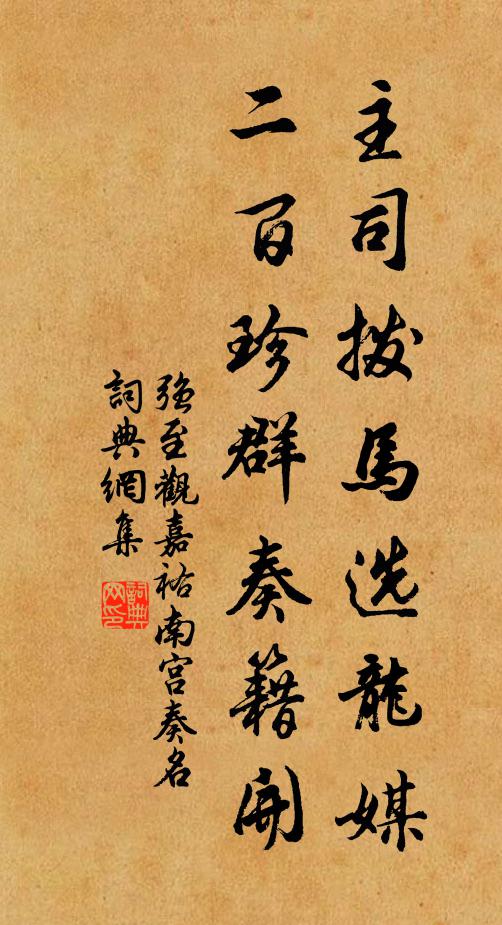 主司拔馬选龍媒
二百珍群奏籍開
強至觀嘉祐南宫奏名
詞典網集
詞典网印